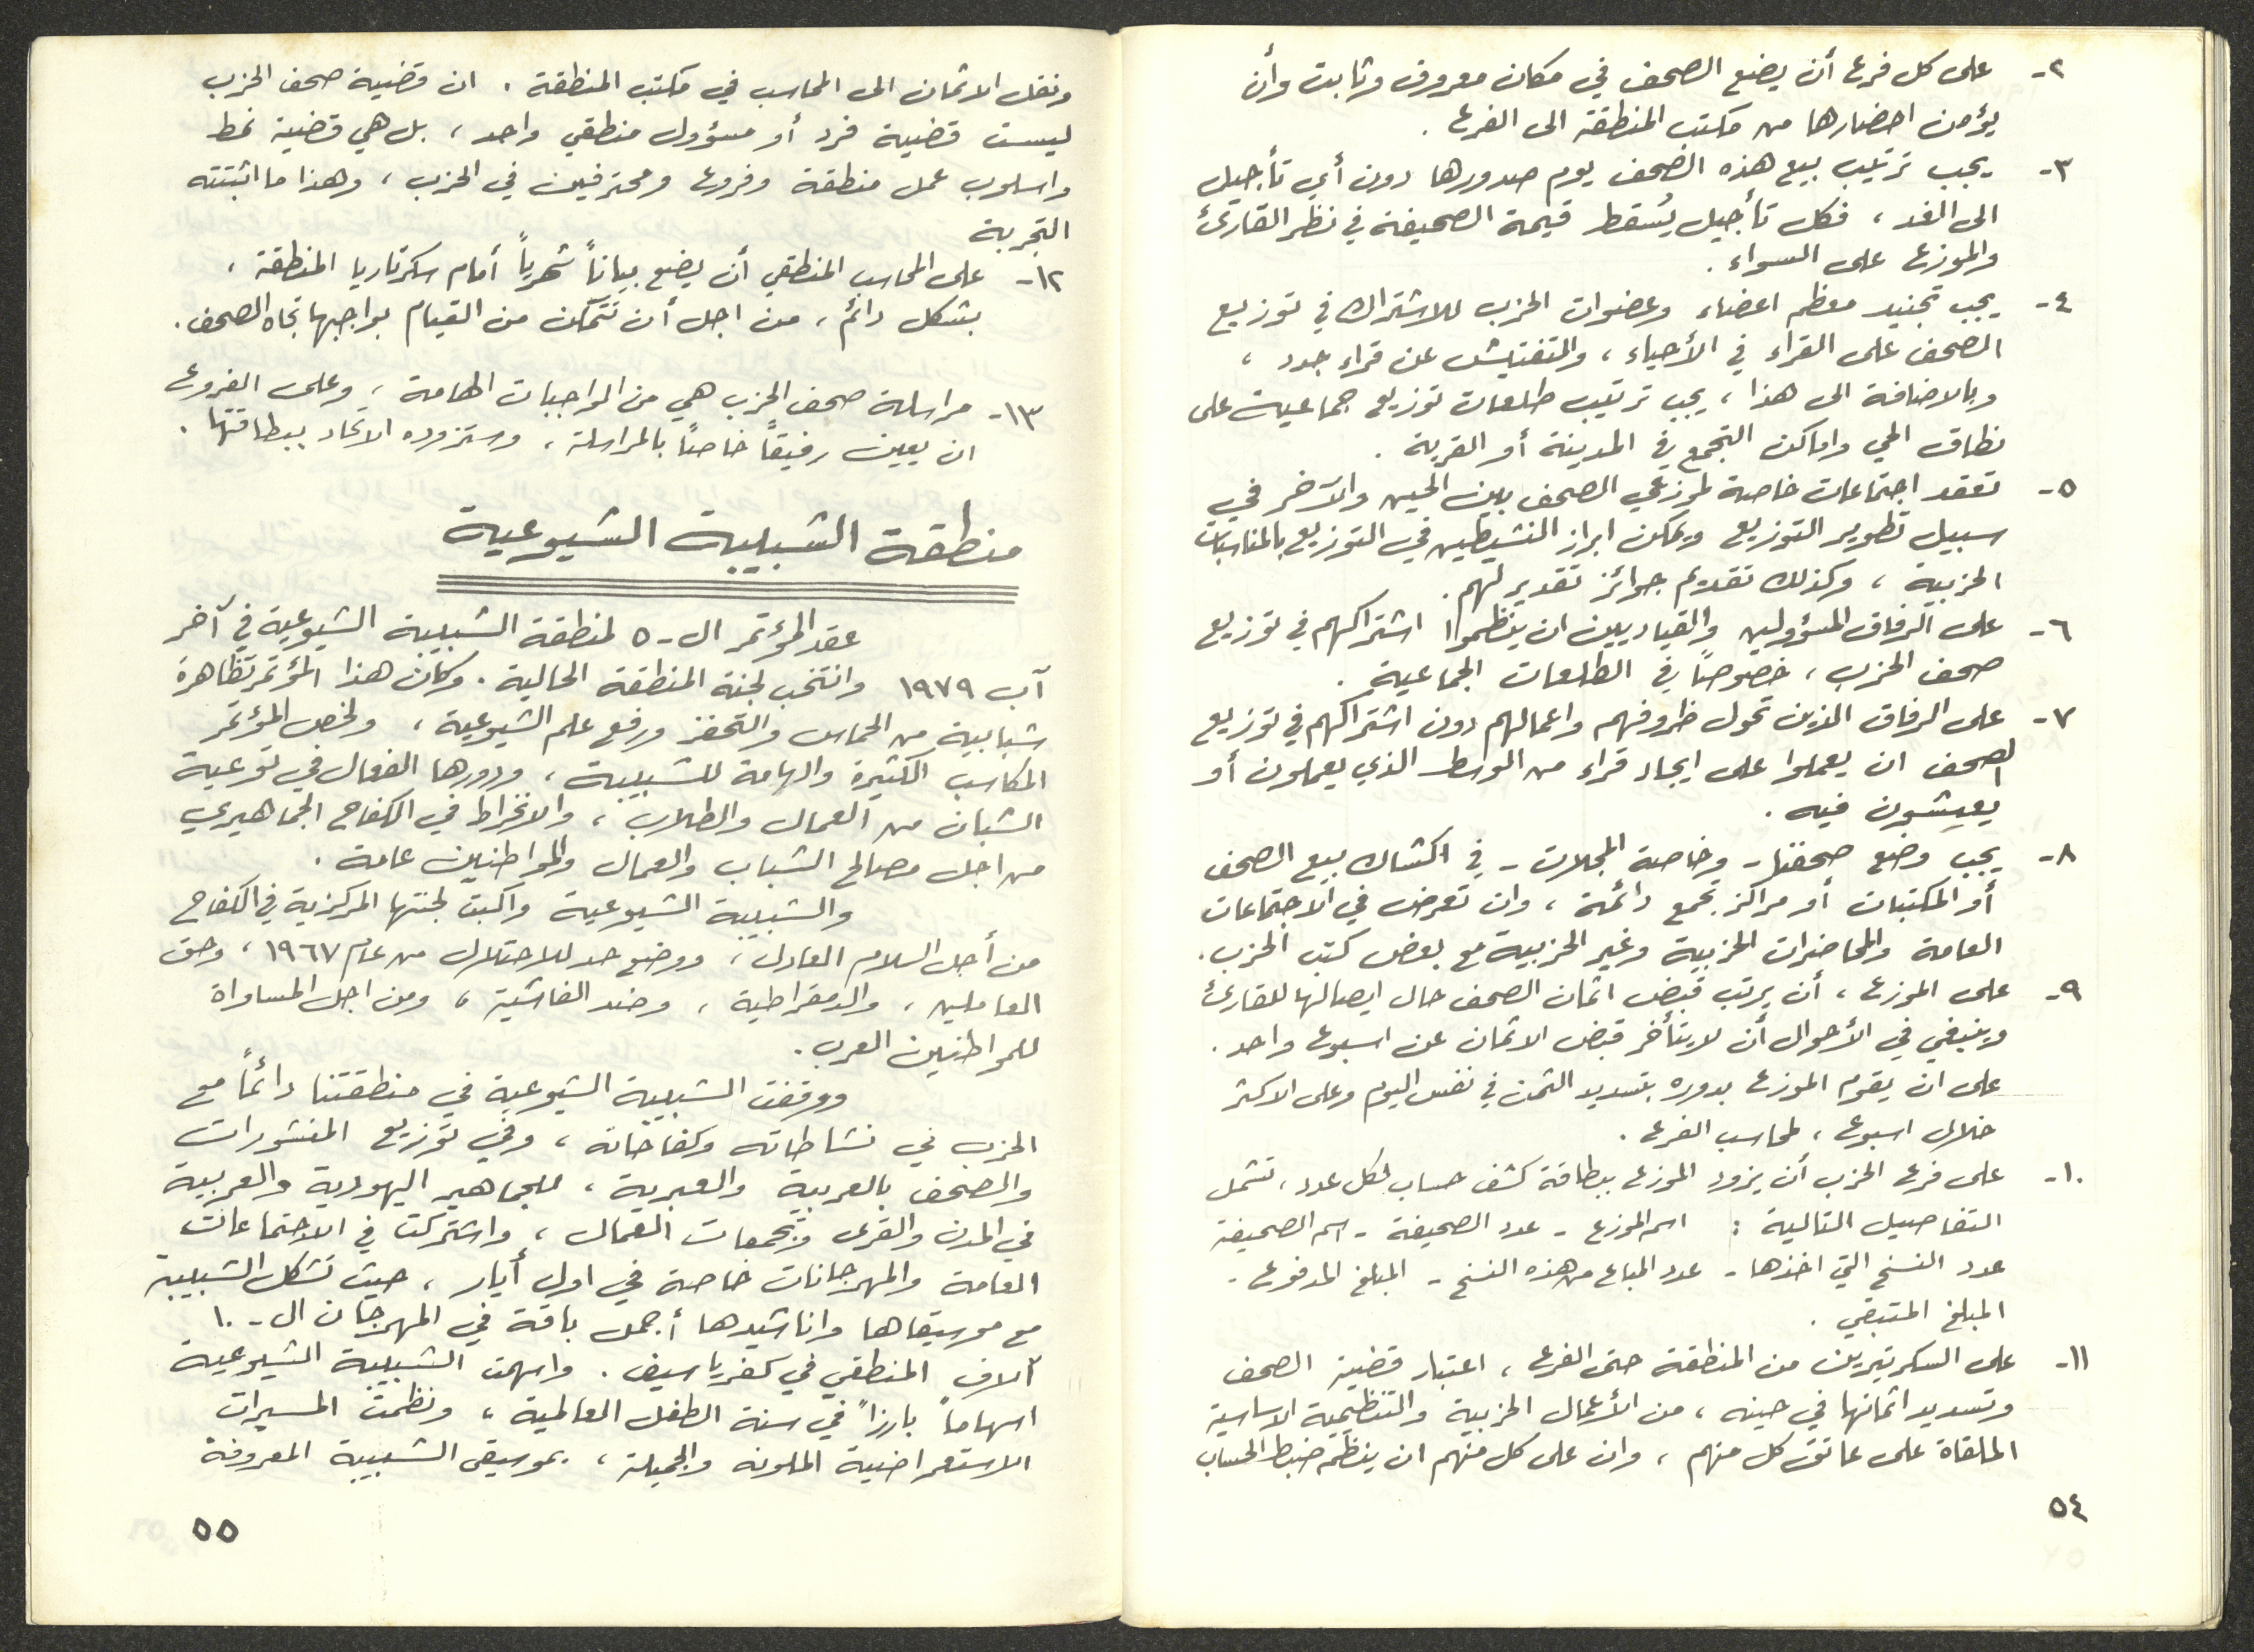 ٢- على كل فرع أن يضع الصحف في مكان معروف وثابت وأن
يؤمن احضارها من مكتب المنطقة الى الفرع .
٣- يجب ترتيب بيع هذه الصحف يوم صدورها دون أي تأجيل
الى الغد ، فكل تأجيل يُسقط قيمة الصحيفة في نظر القارئ
والموزع على السواء .
٤- يجب تجنيد معظم اعضاء وعضوات الحزب للاشتراك في توزيع
الصحف على القراء في الأحياء ، والتفتيش عن قراء جدد ،
وبالاضافة الى هذا ، يجب ترتيب طلعات توزيع جماعية على
نطاق الحي واماكن التجمع في المدينة أو القرية .
٥- تعقد اجتماعات خاصة لموزعي الصحف بين الحين والآخر في
سبيل تطوير التوزيع ويمكن ابراز النشيطين في التوزيع بالمناسبات
الحزبية ، وكذلك تقديم جوائز تقدير لهم .
٦- على الرفاق المسؤولين والقياديين ان ينظموا اشتراكهم في توزيع
صحف الحزب ، خصوصاً في الطلعات الجماعية .
٧- على الرفاق الذين تحول ظروفهم واعمالهم دون اشتراكهم في توزيع
الصحف ان يعملوا على ايجاد قراء من الوسط الذي يعملون أو
يعيشون فيه .
٨- يجب وضع صحفنا - وخاصة المجلات - في اكشاك بيع الصحف
أو المكتبات أو مراكز تجمع دائمة ، وان تعرض في الاجتماعات
العامة والمحاضرات الحزبية وغير الحزبية مع بعض كتب الحزب .
٩- على الموزع ، أن يرتب قبض اثمان الصحف حال ايصالها للقارئ
وينبغي في الأحوال أن لا يتأخر قبض الاثمان عن اسبوع واحد .
على ان يقوم الموزع بدوره بتسديد الثمن في نفس اليوم وعلى الاكثر
خلال اسبوع ، لمحاسب الفرع .
١٠- على فرع الحزب أن يزود الموزع ببطاقة كشف حساب لكل عدد ، تشمل
التفاصيل التالية : اسم الموزع - عدد الصحيفة - اسم الصحيفة
عدد النسخ التي اخذها - عدد المباع من هذه النسخ - المبلغ المدفوع -
المبلغ المتبقي .
١١- على السكرتيرين من المنطقة حتى الفرع ، اعتبار قضية الصحف
وتسديد اثمانها في حينه ، من الأعمال الحزبية والتنظيمية الاساسية
الملقاة على عاتق كل منهم ، وان على كل منهم ان ينظّم ضبط الحساب
٥٤
ونقل الاثمان الى المحاسب في مكتب المنطقة . ان قضية صحف الحزب
ليست قضية فرد أو مسؤول منطقي واحد ، بل هي قضية نمط
واسلوب عمل منطقة وفروع ومحترفين في الحزب ، وهذا ما اثبتته
التجربة
١٢- على المحاسب المنطقي أن يضع بياناً شهرياً أمام سكرتاريا المنطقة ،
بشكل دائم ، من اجل أن تتمكن من القيام بواجبها تجاه الصحف .
١٣- مراسلة صحف الحزب هي من الواجبات الهامة ، وعلى الفروع
ان يعين رفيقاً خاصاً بالمراسلة ، وستزوده الاتحاد ببطاقتها .
منطقة الشبيبة الشيوعية
عقد المؤتمر ال - ٥ لمنطقة الشبيبة الشيوعية في آخر
آب ١٩٧٩ وانتخب لجنة المنطقة الحالية . وكان هذا المؤتمر تظاهرة
شبابية من الحماس والتحفز ورفع علم الشيوعية ، ولخص المؤتمر
المكاسب الكثيرة والهامة للشبيبة ، ودورها الفعال في توعية
الشبان من العمال والطلاب ، والانخراط في الكفاح الجماهيري
من اجل مصالح الشباب والعمال والمواطنين عامة .
والشبيبة الشيوعية واكبت لجنتها المركزية في الكفاح
من أجل السلام العادل ، ووضع حد للاحتلال من عام ١٩٦٧ ، وحق
العاملين ، والدمقراطية ، وضد الفاشية ، ومن اجل المساواة
للمواطنين العرب .
ووقفت الشبيبة الشيوعية في منطقتنا دائماً مع
الحزب في نشاطاته وكفاحاته ، وفي توزيع المنشورات
والصحف بالعربية والعبرية ، للجماهير اليهودية والعربية
في المدن والقرى وتجمعات العمال ، واشتركت في الاجتماعات
العامة والمهرجانات خاصة في اول أيار ، حيث تشكل الشبيبة
مع موسيقاها واناشيدها أجمل باقة في المهرجان ال - ١٠
آلاف المنطقي في كفرياسيف . واسهمت الشبيبة الشيوعية
اسهاماً بارزاً في سنة الطفل العالمية ، ونظمت المسيرات
الاستعراضية الملونه والجميلة ، بموسيقى الشبيبة المعروفة
٥٥